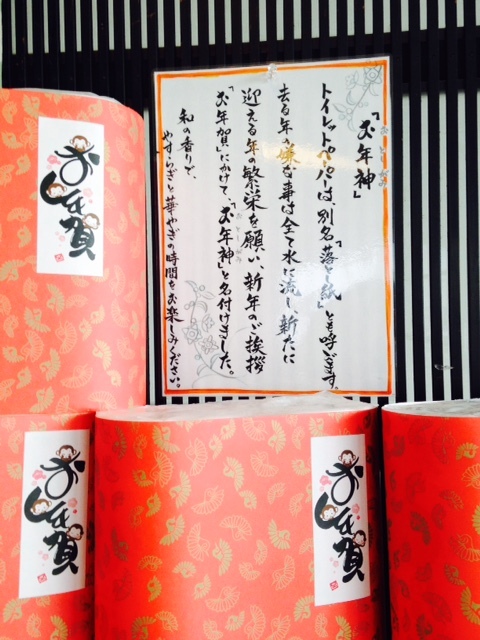 「お年神」
おとしがみ
トイレットペーパーは、別名「落とし紙」とも呼びます。
去る年の嫌な事は全て水に流し、新たに
迎える年の繁栄を願い、新年のご挨拶
「お年賀」にかけて、「お年神」と名付けました。
おとしがみ
和の香りで、
やすらぎと華やぎの時間をお楽しみください。
お年賀
お年賀
お年賀